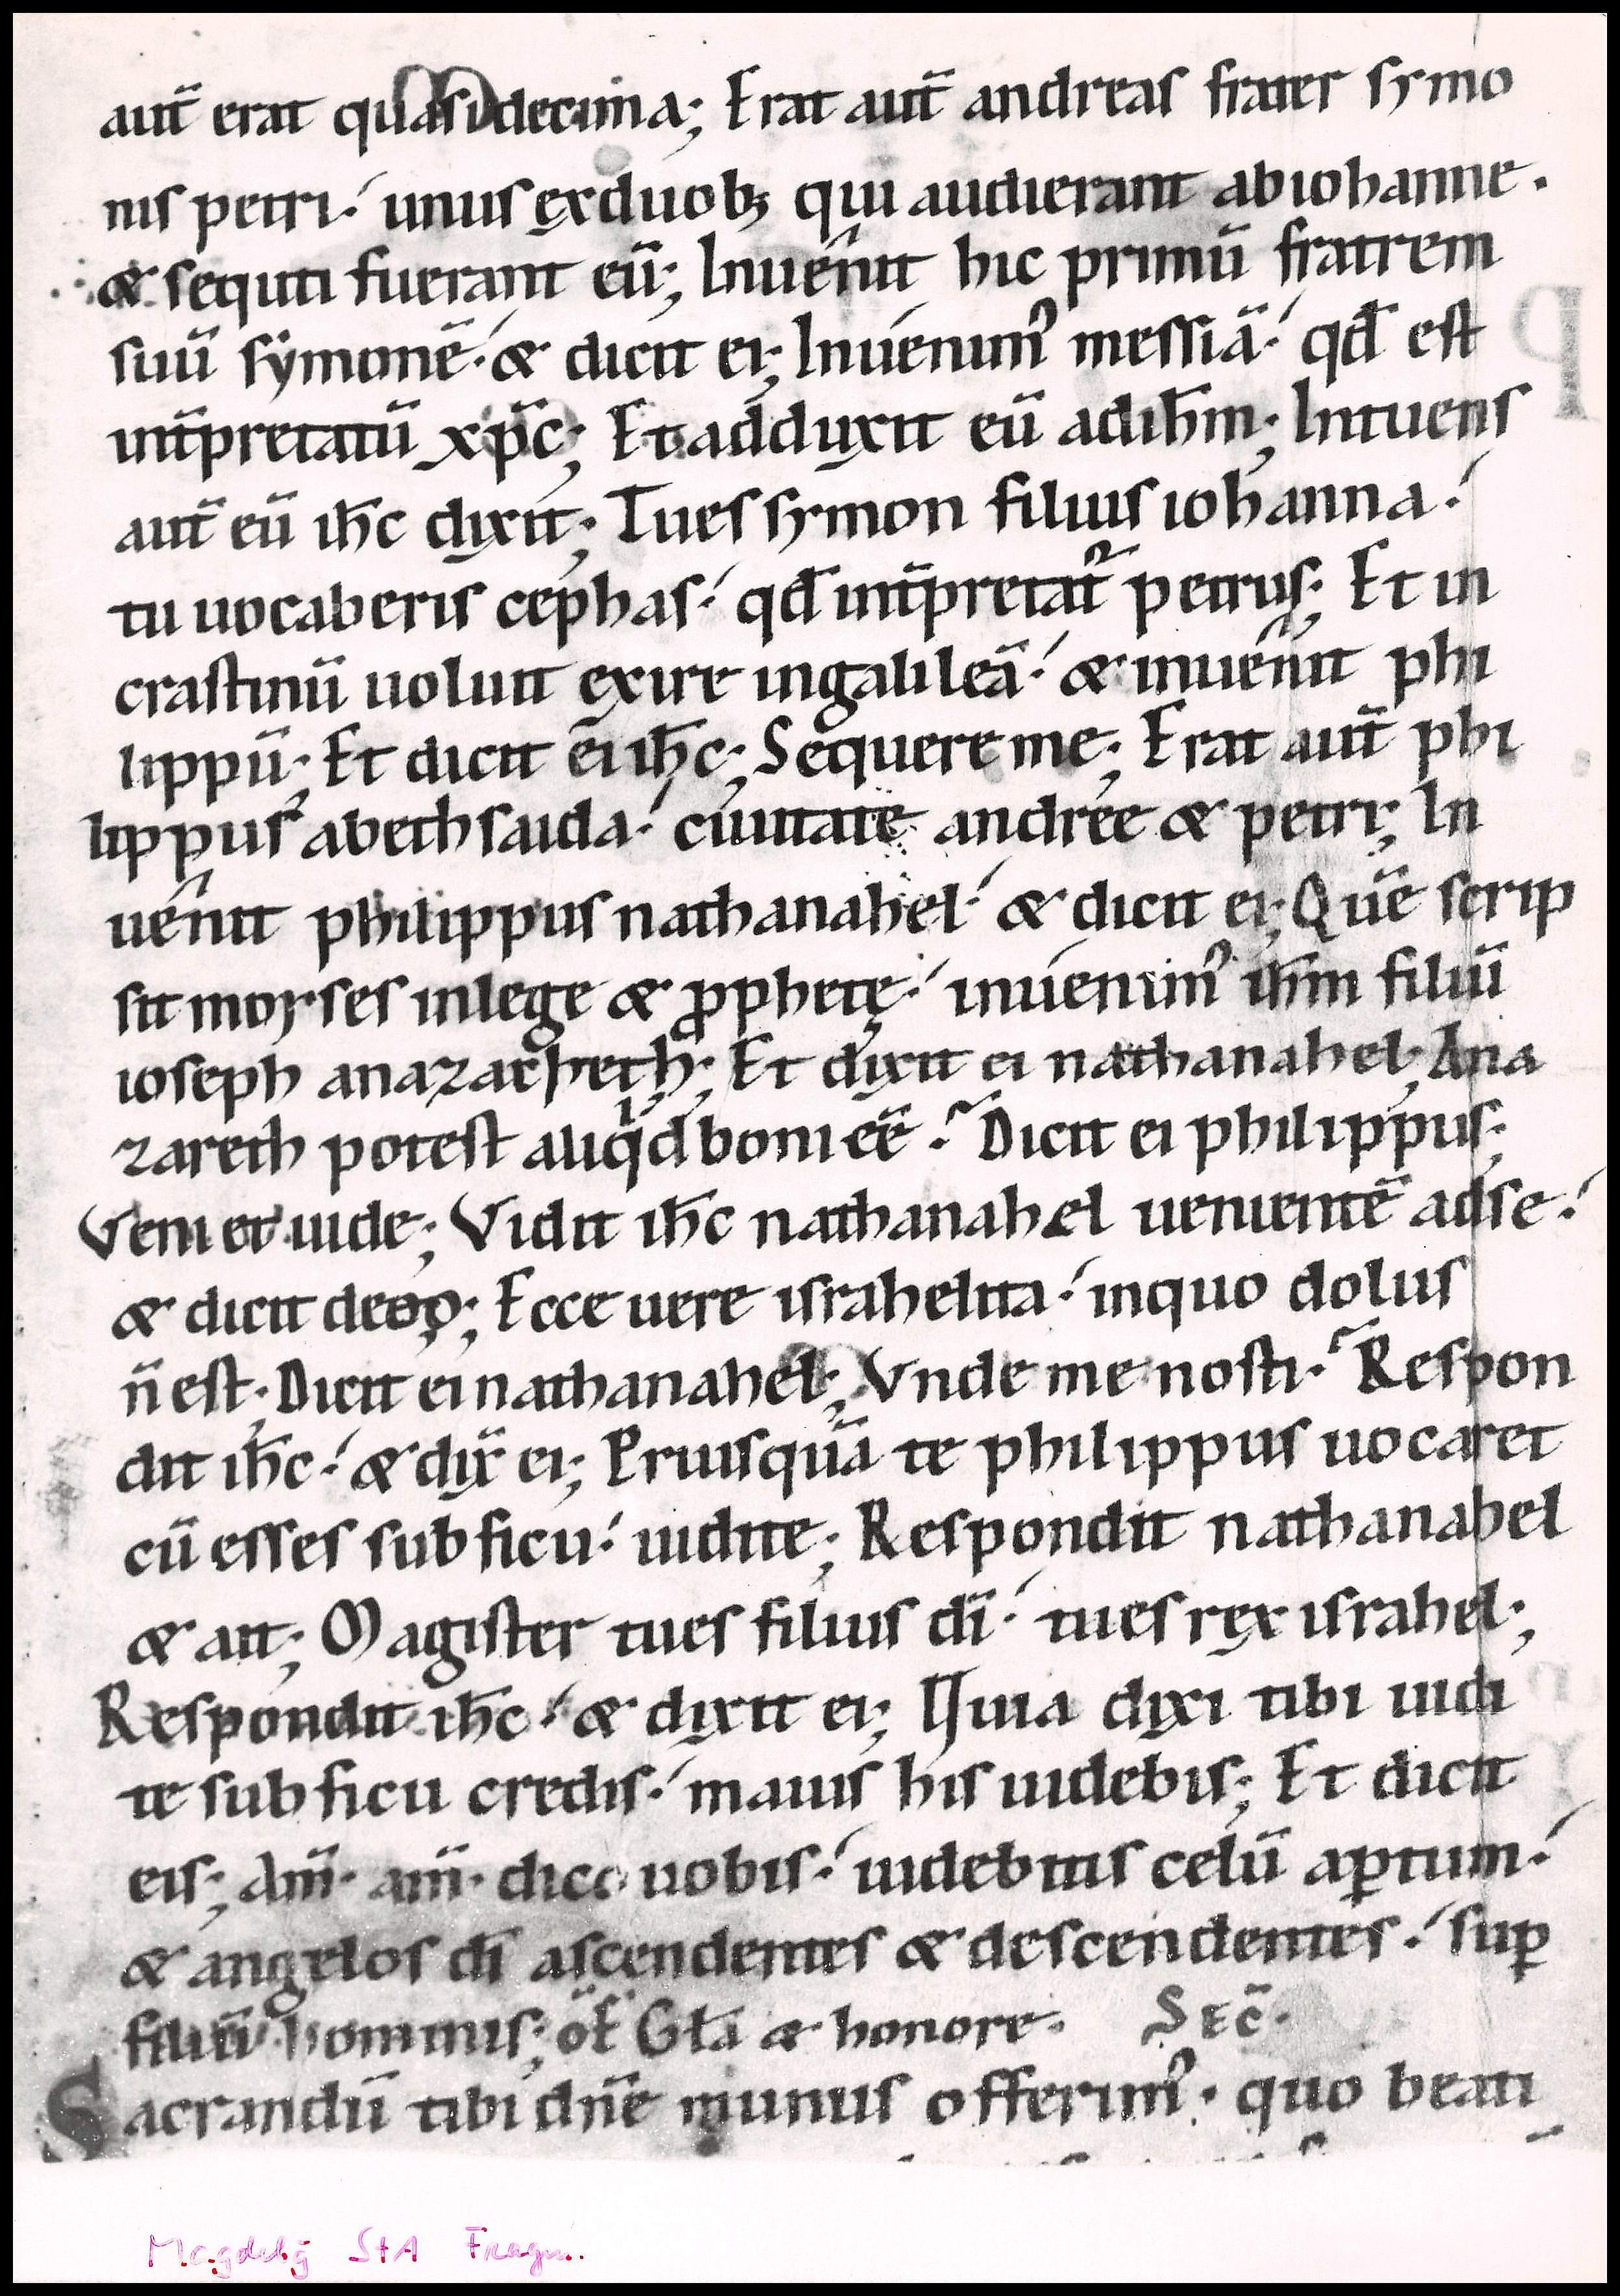 aut̄ erat quasi decima; Erat aut̄ andreas frater symo
nis petri· unus ex duob; qui audierant ab iohanne·
& secuti fuerant eū; Inuenit hic primū fratrem
suū symonē· & dicit ei; Inuenim᾽ messiā· qđ est
int̄pretatū xp̄c; Et adduxit eū ad ih̄m; Intuens
aut̄ eū ih̄c dixit; Tu es symon filius iohanna·
tu uocaberis cephas· qđ int̄pretat᾽ petrus; Et in
crastinū uoluit exire in galileā· & inuenit phi
lippū; Et dicit ei ih̄c; Sequere me; Erat aut̄ phi
lippus a bethsaida· ciuitate andree & petri; In
uenit philippus nathanahel· & dicit ei; Quē scrip
sit moyses in lege & ꝓphetę· inuenim᾽ ih̄m filiū
ioseph a nazareth; Et dixit ei nathanahel; A na
zareth potest aliqͥd boni eē·̃ Dicit ei philippus;
Veni et uide; Vidit ih̄c nathanahel uenientē ad se·
& dicit de eo; Ecce uere israhelita· in quo dolus
n̄ est; Dicit ei nathanahel; Vnde me nosti·̃ Respon
dit ih̄c· & dix̄ ei; Priusquā te philippus uocaret
cū esses sub ficu· uidi te; Respondit nathanahel
& ait; Magister tu es filius dī· tu es rex israhel;
Respondit ih̄c· & dixit ei; Quia dixi tibi uidi
te sub ficu credis· maius his uidebis; Et dicit
eis; Am̄· am̄· dico uobis· uidebitis celū aꝑtum·
& angelos dī ascendentes & descendentes· suꝑ
filiū hominis; of̄ Gła & honore· Sec̄·
Sacrandū tibi dn̄e munus offerim᾽· quo beati
Magdebg StA Fragm.